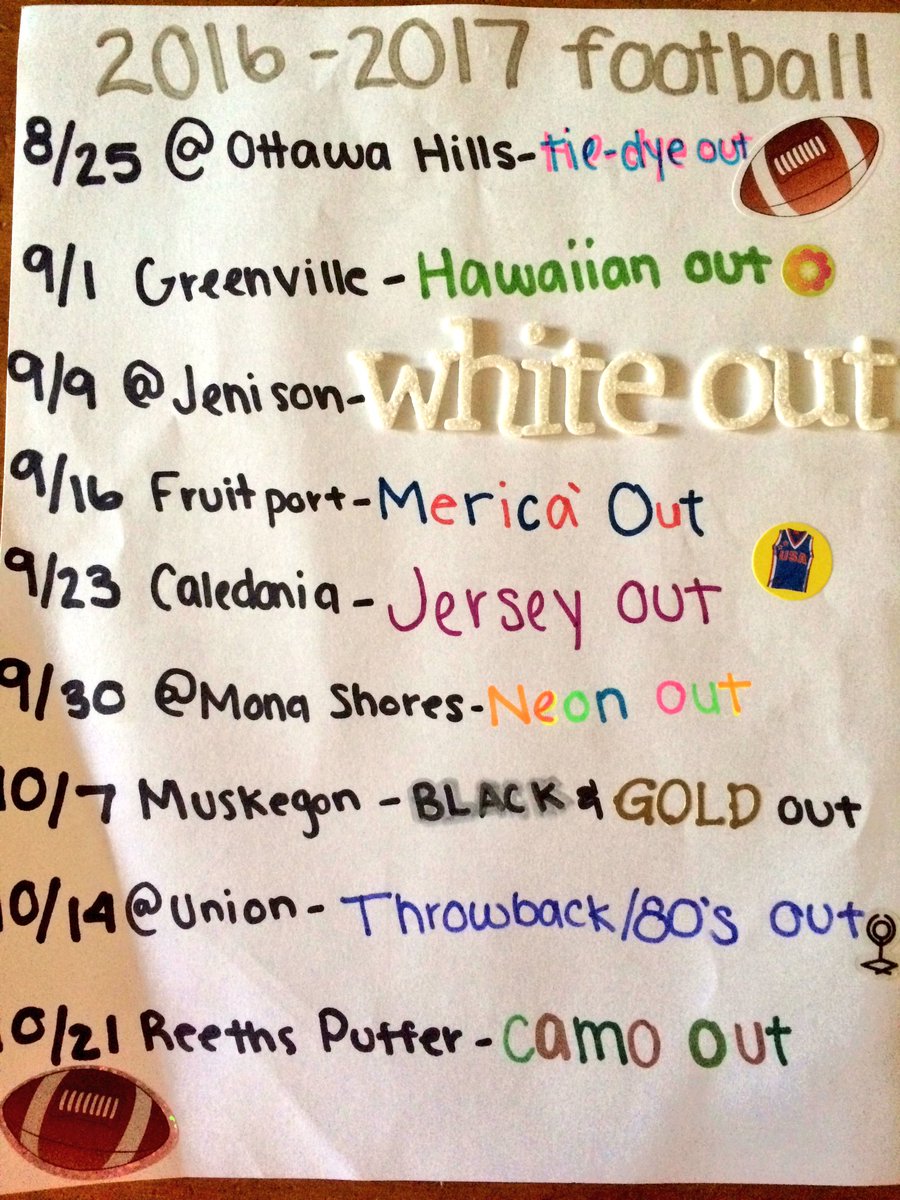 2016-2017 football
8/25 @ Ottawa Hills-tie-dye out
9/1 Greenville - Hawaiian out
9/9 @Jenison-white out
9/16 Fruitport-Merica` Out
9/23 Caledonia - Jersey out
USA
9/30 @Mona Shores-Neon out
10/7 Muskegon - BLACK & GOLD out
10/14 @Union- Throwback/80's out
10/21 Reeths Puffer - camo out